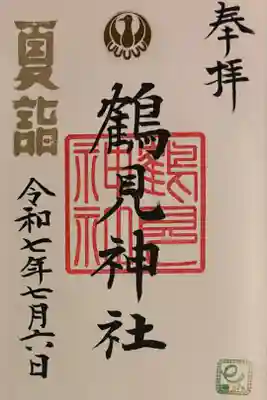 奉拝
鶴見神社
鶴見
神社
夏詣
令和七年七月六日